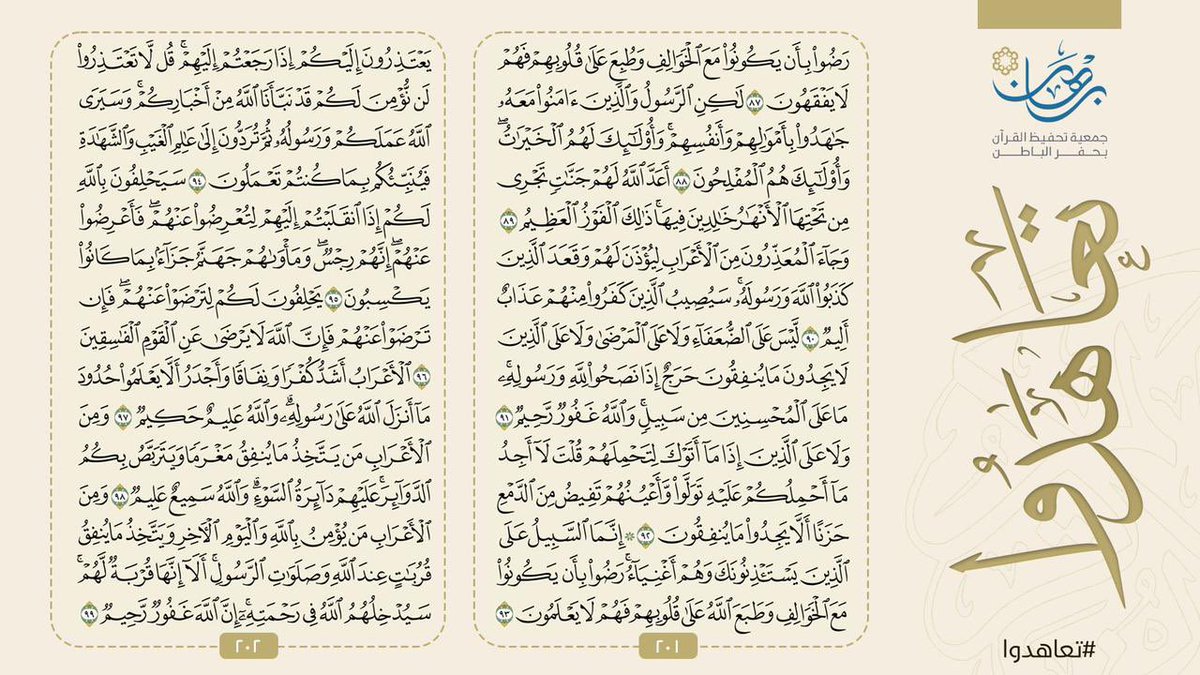 برهان
جمعية تحفيظ القرآن
بحفر الباطن
تعاهدوا
#تعاهدوا
رَضُوا۟ بِأَن يَكُونُوا۟ مَعَ ٱلْخَوَالِفِ وَطُبِعَ عَلَىٰ قُلُوبِهِمْ فَهُمْ
لَا يَفْقَهُونَ ٨٧ لَٰكِنِ ٱلرَّسُولُ وَٱلَّذِينَ ءَامَنُوا۟ مَعَهُۥ
جَٰهَدُوا۟ بِأَمْوَٰلِهِمْ وَأَنفُسِهِمْ ۚ وَأُو۟لَٰٓئِكَ لَهُمُ ٱلْخَيْرَٰتُ ۖ
وَأُو۟لَٰٓئِكَ هُمُ ٱلْمُفْلِحُونَ ٨٨ أَعَدَّ ٱللَّهُ لَهُمْ جَنَّٰتٍ تَجْرِى
مِن تَحْتِهَا ٱلْأَنْهَٰرُ خَٰلِدِينَ فِيهَا ۚ ذَٰلِكَ ٱلْفَوْزُ ٱلْعَظِيمُ ٨٩
وَجَآءَ ٱلْمُعَذِّرُونَ مِنَ ٱلْأَعْرَابِ لِيُؤْذَنَ لَهُمْ وَقَعَدَ ٱلَّذِينَ
كَذَبُوا۟ ٱللَّهَ وَرَسُولَهُۥ ۚ سَيُصِيبُ ٱلَّذِينَ كَفَرُوا۟ مِنْهُمْ عَذَابٌ
أَلِيمٌ ٩٠ لَّيْسَ عَلَى ٱلضُّعَفَآءِ وَلَا عَلَى ٱلْمَرْضَىٰ وَلَا عَلَى ٱلَّذِينَ
لَا يَجِدُونَ مَا يُنفِقُونَ حَرَجٌ إِذَا نَصَحُوا۟ لِلَّهِ وَرَسُولِهِۦ ۚ
مَا عَلَى ٱلْمُحْسِنِينَ مِن سَبِيلٍ ۚ وَٱللَّهُ غَفُورٌ رَّحِيمٌ ٩١
وَلَا عَلَى ٱلَّذِينَ إِذَا مَآ أَتَوْكَ لِتَحْمِلَهُمْ قُلْتَ لَآ أَجِدُ
مَآ أَحْمِلُكُمْ عَلَيْهِ تَوَلَّوا۟ وَّأَعْيُنُهُمْ تَفِيضُ مِنَ ٱلدَّمْعِ
حَزَنًا أَلَّا يَجِدُوا۟ مَا يُنفِقُونَ ٩٢ ۞ إِنَّمَا ٱلسَّبِيلُ عَلَى
ٱلَّذِينَ يَسْتَـْٔذِنُونَكَ وَهُمْ أَغْنِيَآءُ ۚ رَضُوا۟ بِأَن يَكُونُوا۟
مَعَ ٱلْخَوَالِفِ وَطَبَعَ ٱللَّهُ عَلَىٰ قُلُوبِهِمْ فَهُمْ لَا يَعْلَمُونَ ٩٣
٢٠١
يَعْتَذِرُونَ إِلَيْكُمْ إِذَا رَجَعْتُمْ إِلَيْهِمْ ۚ قُل لَّا تَعْتَذِرُوا۟
لَن نُّؤْمِنَ لَكُمْ قَدْ نَبَّأَنَا ٱللَّهُ مِنْ أَخْبَارِكُمْ ۚ وَسَيَرَى
ٱللَّهُ عَمَلَكُمْ وَرَسُولُهُۥ ثُمَّ تُرَدُّونَ إِلَىٰ عَٰلِمِ ٱلْغَيْبِ وَٱلشَّهَٰدَةِ
فَيُنَبِّئُكُم بِمَا كُنتُمْ تَعْمَلُونَ ٩٤ سَيَحْلِفُونَ بِٱللَّهِ
لَكُمْ إِذَا ٱنقَلَبْتُمْ إِلَيْهِمْ لِتُعْرِضُوا۟ عَنْهُمْ ۖ فَأَعْرِضُوا۟
عَنْهُمْ ۖ إِنَّهُمْ رِجْسٌ ۖ وَمَأْوَىٰهُمْ جَهَنَّمُ جَزَآءًۢ بِمَا كَانُوا۟
يَكْسِبُونَ ٩٥ يَحْلِفُونَ لَكُمْ لِتَرْضَوْا۟ عَنْهُمْ ۖ فَإِن
تَرْضَوْا۟ عَنْهُمْ فَإِنَّ ٱللَّهَ لَا يَرْضَىٰ عَنِ ٱلْقَوْمِ ٱلْفَٰسِقِينَ
٩٦ ٱلْأَعْرَابُ أَشَدُّ كُفْرًا وَنِفَاقًا وَأَجْدَرُ أَلَّا يَعْلَمُوا۟ حُدُودَ
مَآ أَنزَلَ ٱللَّهُ عَلَىٰ رَسُولِهِۦ ۗ وَٱللَّهُ عَلِيمٌ حَكِيمٌ ٩٧ وَمِنَ
ٱلْأَعْرَابِ مَن يَتَّخِذُ مَا يُنفِقُ مَغْرَمًا وَيَتَرَبَّصُ بِكُمُ
ٱلدَّوَآئِرَ ۚ عَلَيْهِمْ دَآئِرَةُ ٱلسَّوْءِ ۗ وَٱللَّهُ سَمِيعٌ عَلِيمٌ ٩٨ وَمِنَ
ٱلْأَعْرَابِ مَن يُؤْمِنُ بِٱللَّهِ وَٱلْيَوْمِ ٱلْءَاخِرِ وَيَتَّخِذُ مَا يُنفِقُ
قُرُبَٰتٍ عِندَ ٱللَّهِ وَصَلَوَٰتِ ٱلرَّسُولِ ۚ أَلَآ إِنَّهَا قُرْبَةٌ لَّهُمْ ۚ
سَيُدْخِلُهُمُ ٱللَّهُ فِى رَحْمَتِهِۦٓ ۗ إِنَّ ٱللَّهَ غَفُورٌ رَّحِيمٌ ٩٩
٢٠٢